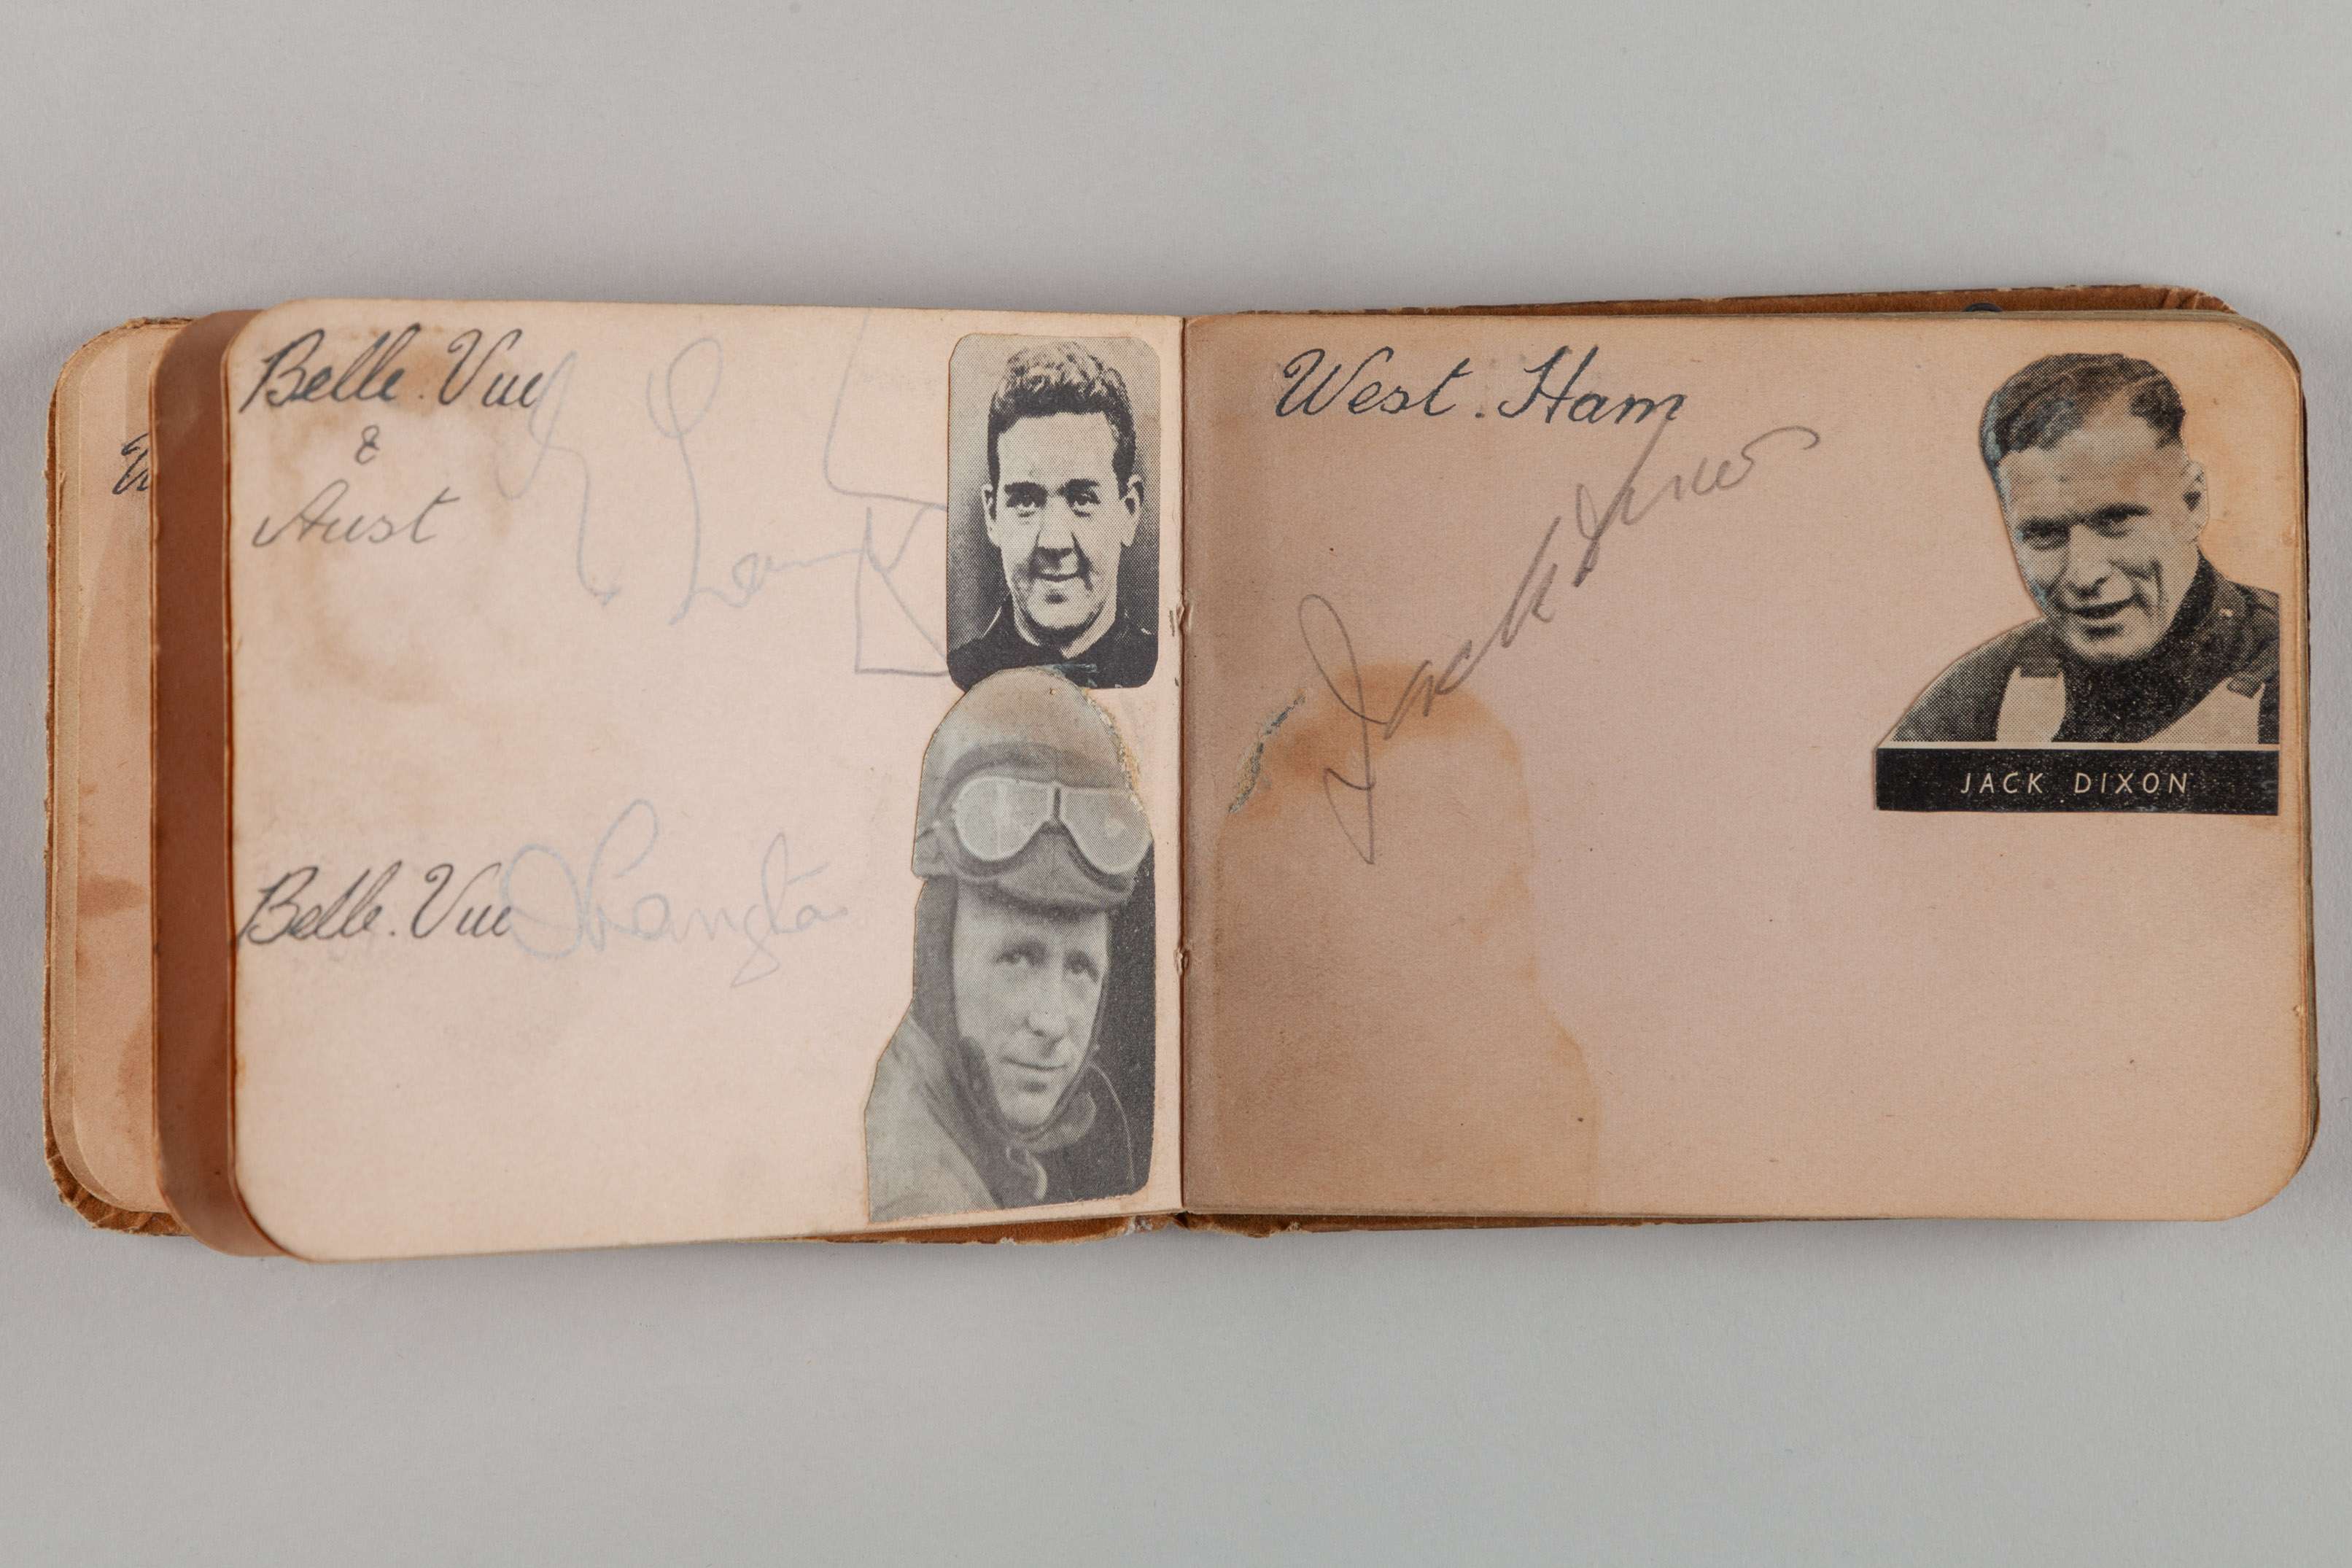 Belle. Vue
&
Aust
Belle. Vue
West. Ham
Jack Dixon
JACK DIXON